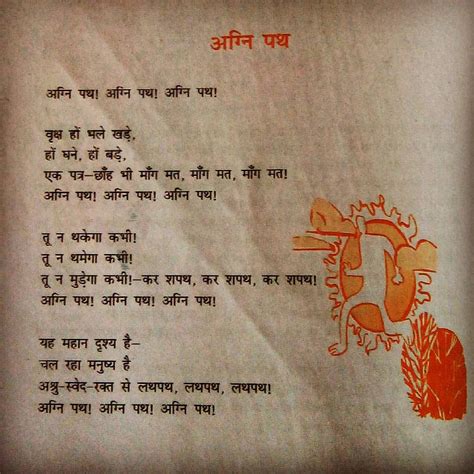 अग्नि पथ
अग्नि पथ! अग्नि पथ! अग्नि पथ!
वृक्ष हों भले खड़े,
हों घने, हों बड़े,
एक पत्र–छाँह भी माँग मत, माँग मत, माँग मत!
अग्नि पथ! अग्नि पथ! अग्नि पथ!
तू न थकेगा कभी!
तू न थमेगा कभी!
तू न मुड़ेगा कभी!–कर शपथ, कर शपथ, कर शपथ!
अग्नि पथ! अग्नि पथ! अग्नि पथ!
यह महान दृश्य है–
चल रहा मनुष्य है
अश्रु–स्वेद–रक्त से लथपथ, लथपथ, लथपथ!
अग्नि पथ! अग्नि पथ! अग्नि पथ!